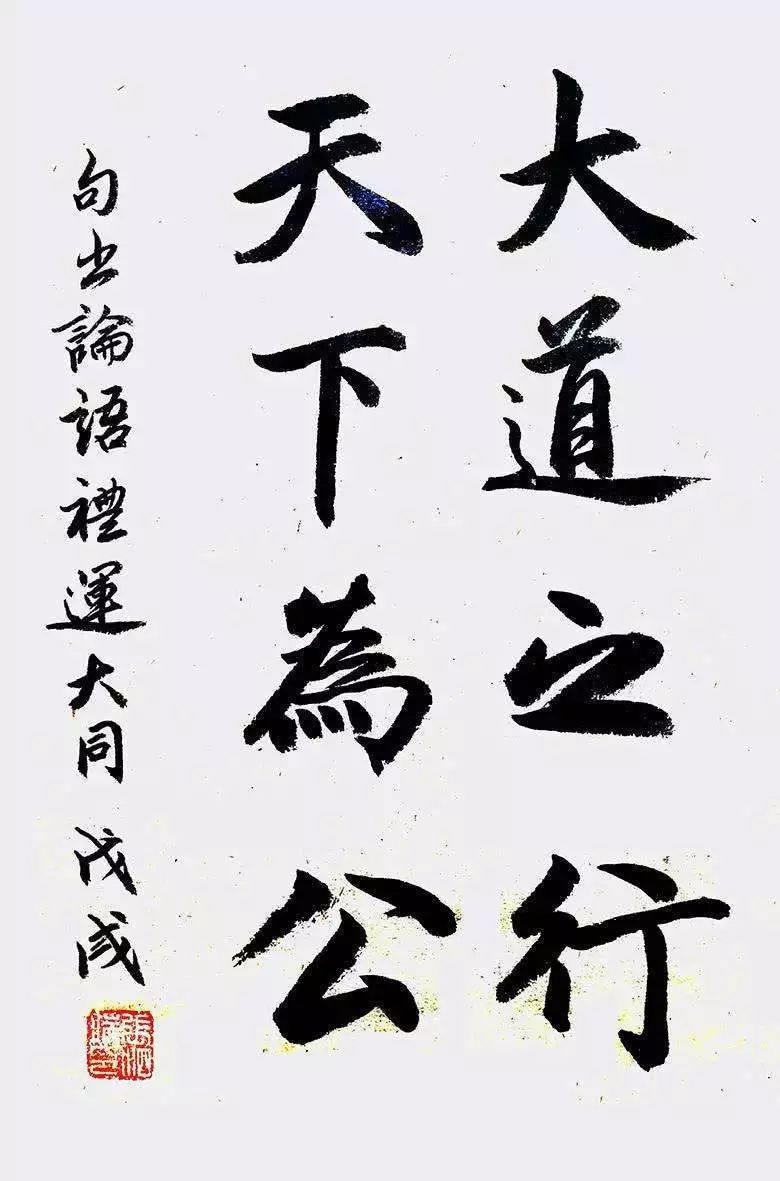 大道之行
天下為公
句出論語禮運大同 戊戌